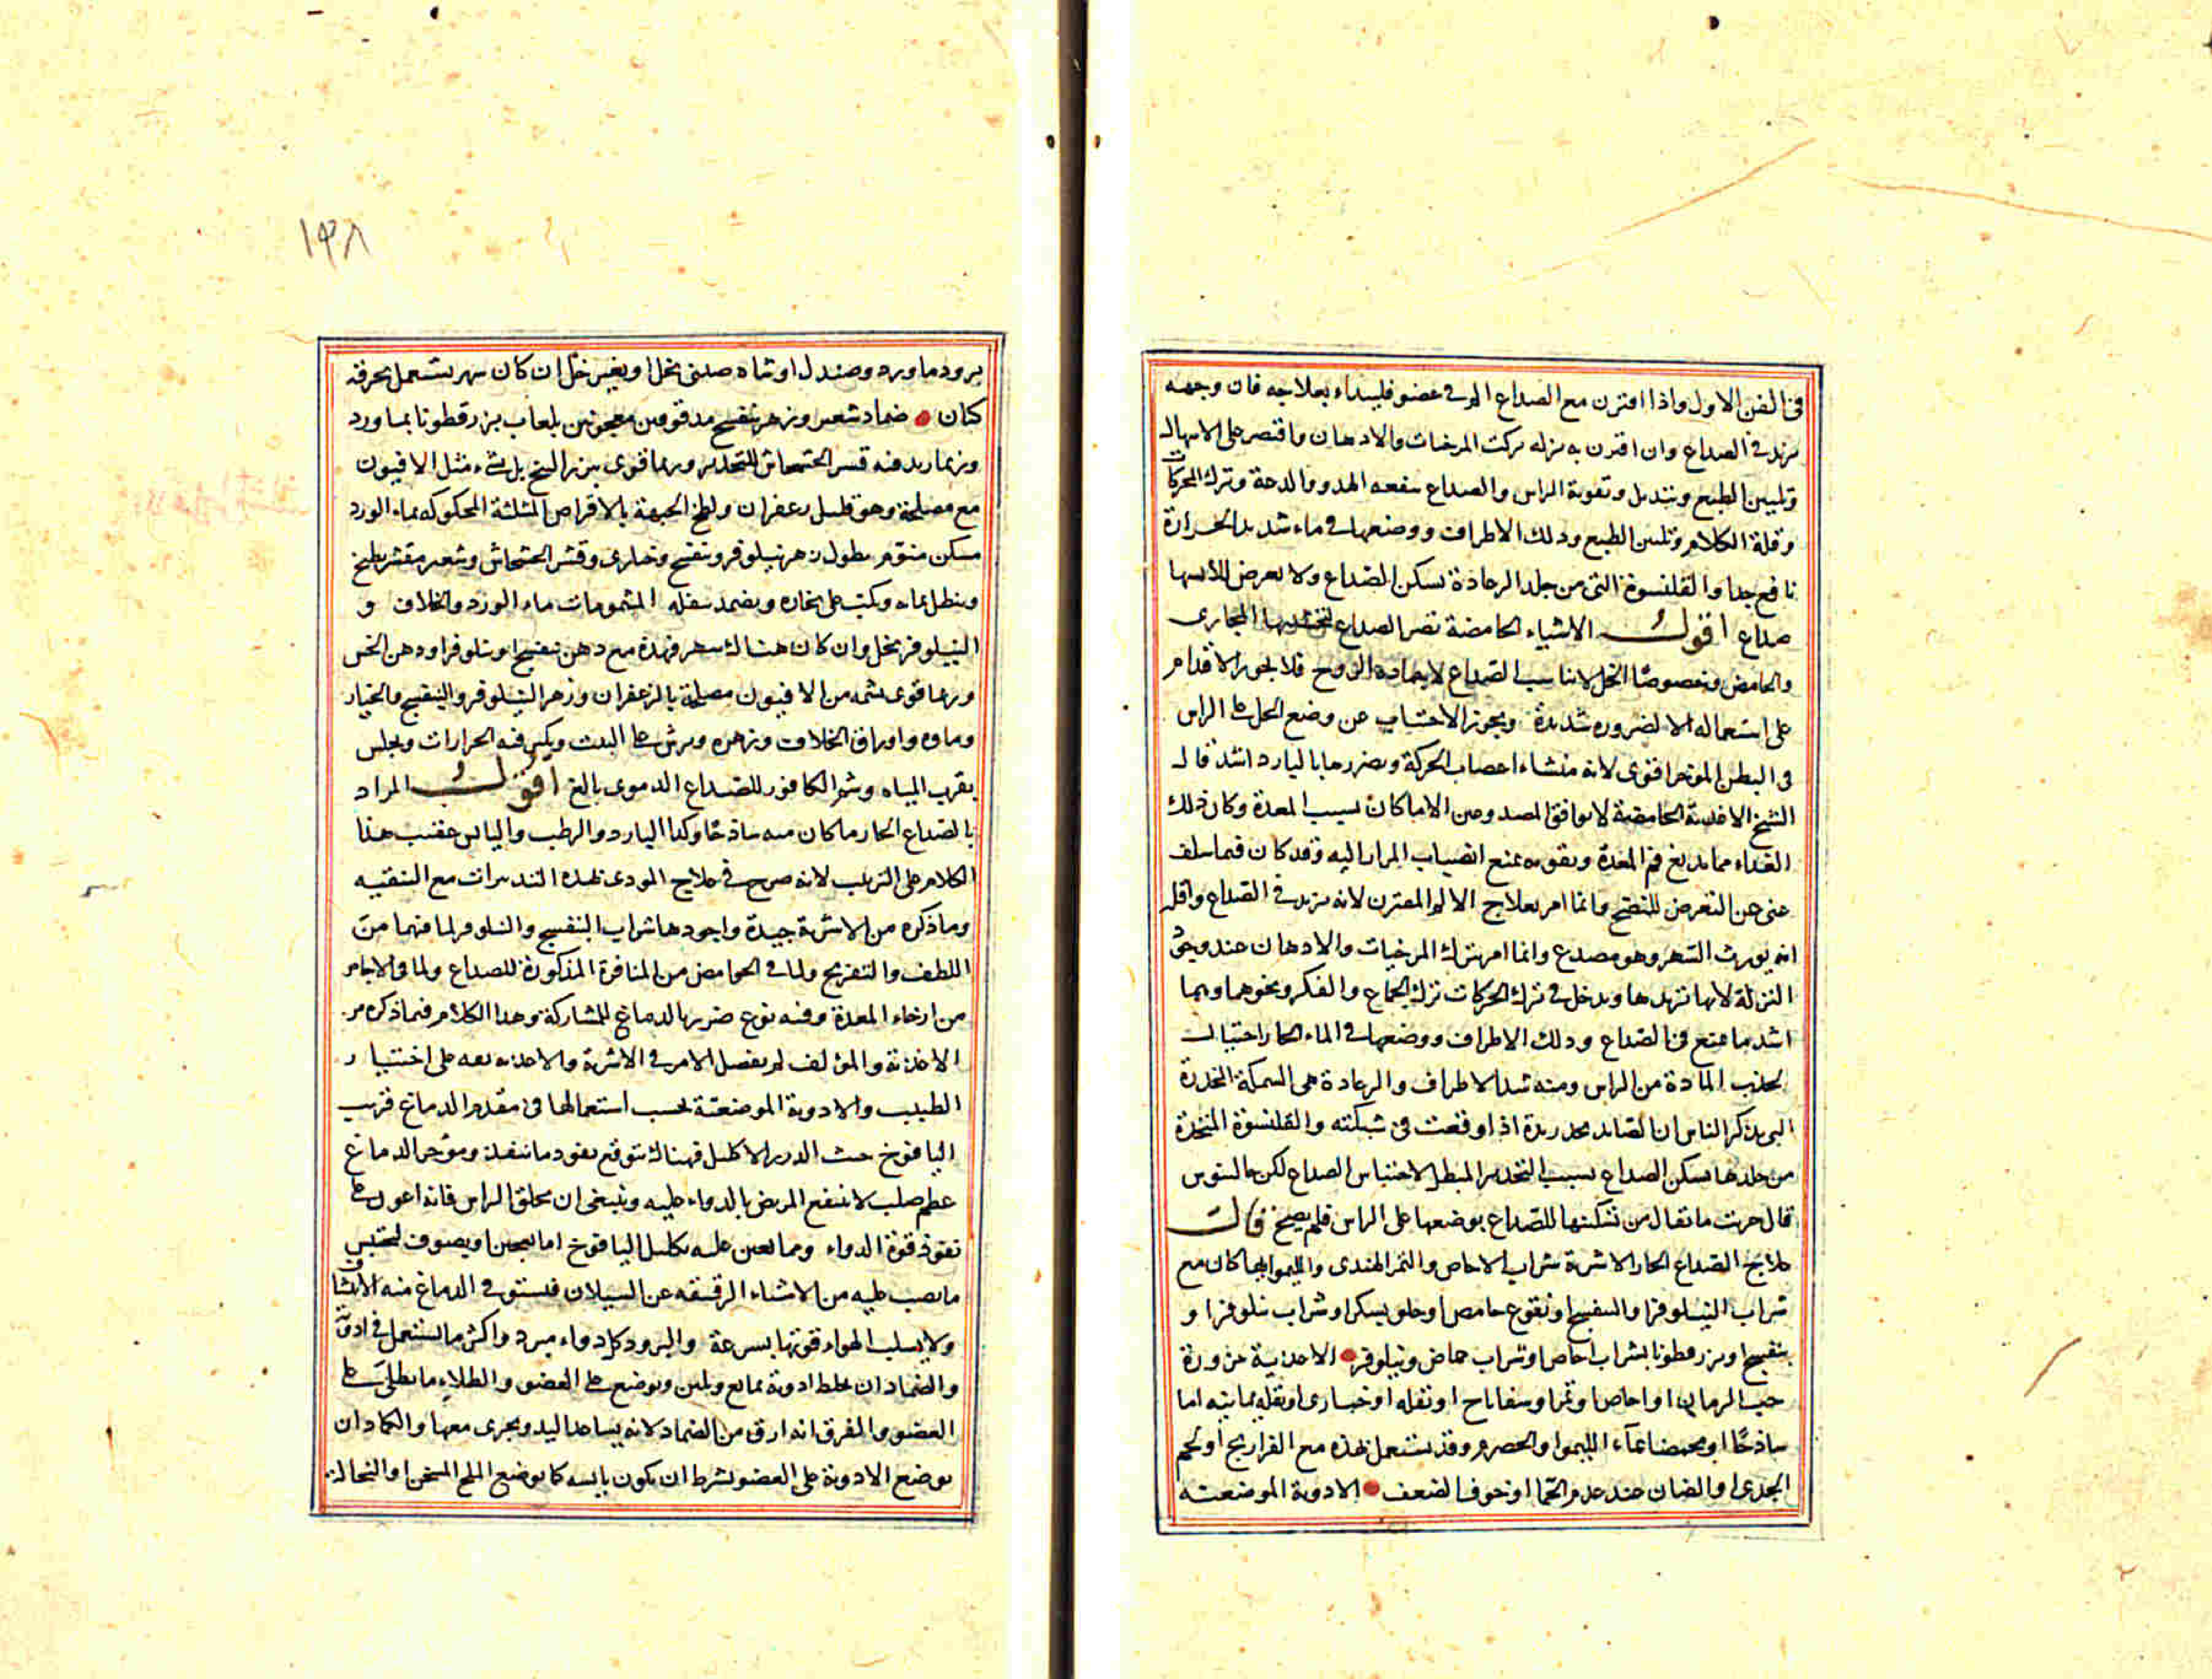 في الفن الاول واذا اقترن مع الصداع الم في عضو فليبداء بعلاجه فان وجعه
يزيد في الصداع وان اقترن به نزله تركت المرخيات والادهان واقتصر على الاسهال
وتليين الطبع وتبديل وتقوية الراس والصداع ينفعه الهدو والدعة وترك الحركات
وقلة الكلام وتليين الطبع ودلك الاطراف ووضعها في ماء شديد الحرارة
نافع جدا والقلنسوة التي من جلد الرعادة تسكن الصداع ولا يعرض للابسها
صداع اقول الاشياء الحامضة تضر الصداع المجارى
والحامض وخصوصًا الخل لا تناسب الصداع لا الروح فلا يجوز الاقدام
على استعماله الا لضروره شديدة ويجوز الاجتناب عن وضع الخل على الراس
في البطن الموخر اقوى لانه منشاء اعصاب الحركة وتضررها بالبارد اشد قال
الشيخ الاغذية الحامضة لا توافق المصدوعين الا ما كان بسبب المعدة وكان ذلك
الغذاء مما يدبغ فم المعدة ويقويه بمنع انصباب المرار اليه وقد كان فيما سلف
غنى عن التعرض للنضج وانما امر بعلاج الالم المقترن لانه يزيد في الصداع واقله
انه يورث السهر وهو مصدع وانما امر بترك المرخيات والادهان عند وجود
النزلة لانها تزيدها ويدخل في ترك الحركات ترك الجماع والفكر ونحوهما وهما
اشد ما يمنع في الصداع ودلك الاطراف ووضعها في الماء الحار احتيال
لجذب المادة من الراس ومنه شد الاطراف والرعادة هي السمكة المخدرة
التي يذكر الناس ان الصائد يخدر يده اذا وقعت في شبكته والقلنسوة المتخذة
من جلدها تسكن الصداع بسبب التخدير المبطل لاحتباس الصداع لكن جالينوس
قال جربت ما يقال من تسكينها للصداع بوضعها على الراس فلم يصح قال
علاج الصداع الحار الاشربة شراب الاجاص والتمر الهندى والليمو ايها كان مع
شراب النيلوفر او البنفسج او نقوع حامض او حلو بسكر او شراب نيلوفر او
بنفسج او بزر قطونا بشراب اجاص او شراب حماض ونيلوفر • الاغذية مزورة
حب الرمان او اجاص او تمر او سفاناخ او بقله او خبازى او بقله يمانيه اما
ساذجًا او محمضا بماء الليمو او الحصرم وقد تستعمل هذه مع الفراريج او لحم
الجدى او الضان عند عدم الحمى او خوف الضعف • الادوية الموضعية
١٣٨
برود ماورد وصندل او شاه صيني بخل او بغير خل ان كان سهر يستعمل بخرقة
كتان • ضماد شعير وزهر بنفسج مدقوقين معجونين بلعاب بزر قطونا بماورد
وربما زيد فيه قشر الخشخاش للتخدير وربما قوى ببزر البنج بل بشيء مثل الافيون
مع مصلحه وهو قليل زعفران ولطخ الجبهة بالاقراص المثلثة المحكوكة بماء الورد
مسكن منوم نطول زهر نيلوفر وبنفسج وخبازى وقشر الخشخاش وشعير مقشر يطبخ
وينطل بمائه ويكب على بخاره ويضمد بثفله المشمومات ماء الورد والخلاف و
النيلوفر بخل وان كان هناك سهر فهذه مع دهن بنفسج او نيلوفر او دهن الخس
وربما قوى بشمه من الافيون مصلحة بالزعفران وزهر النيلوفر والبنفسج والخيار
وماوه واوراق الخلاف وزهره ويرش على البيت ويكثر فيه الجرارات ويجلس
بقرب المياه وشم الكافور للصداع الدموى بالغ اقول المراد
بالصداع الحار ما كان منه ساذجًا وكذا البارد والرطب واليابس عقيب هذا
الكلام على الترتيب لانه صرح في علاج المودى بهذه التدبيرات مع التنقيه
وما ذكره من الاشربة جيدة واجودها شراب البنفسج والنيلوفر لما فيهما من
اللطف والتفريح ولما في الحوامض من المنافرة المذكورة للصداع ولما في الاجاص
من ارخاء المعدة وفيه نوع ضرر بالدماغ للمشاركة وهذا الكلام فيما ذكره من
الاغذية والمؤلف لم يفصل الامر في الاشربة والاغذيه بقه على اختيار
الطبيب والادوية الموضعية يحسب استعمالها في مقدم الدماغ قريب
اليافوخ حيث الدرز الاكليل فهناك يتوقع نفوذ ما ينفذ وموخر الدماغ
عظم صلب لا ينتفع المريض بالدواء عليه وينبغى ان يحلق الراس فانه اعون على
نفوذ قوة الدواء ومما يعين عليه تكليل اليافوخ اما بعجين او بصوف لتحتبس
ما يصب عليه من الاشياء الرقيقه عن السيلان فيستوفي الدماغ منه الانتشاف
ولا يسلب الهواء قوتها بسرعة والبرود كل دواء مبرد واكثر ما يستعمل في ادوية
والضماد ان يخلط ادوية بمايع ويلين ويوضع على العضو والطلاء ما يطلى على
العضو والفرق انه ارق من الضماد لانه يساعد اليد ويجرى معها والكماد ان
يوضع الادوية على العضو بشرط ان يكون يابسه كما يوضع الملح المسخن او النخالة